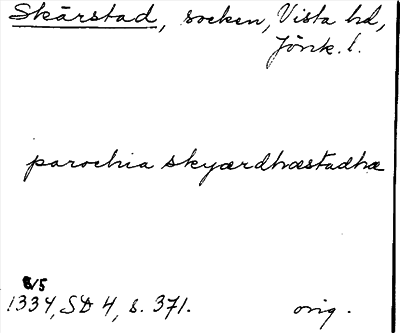 Skärstad, socken, Vista hd,
Jönk. l.
parochia skyærdhæstadhæ
8/5
1334, SD 4, s. 371. orig.